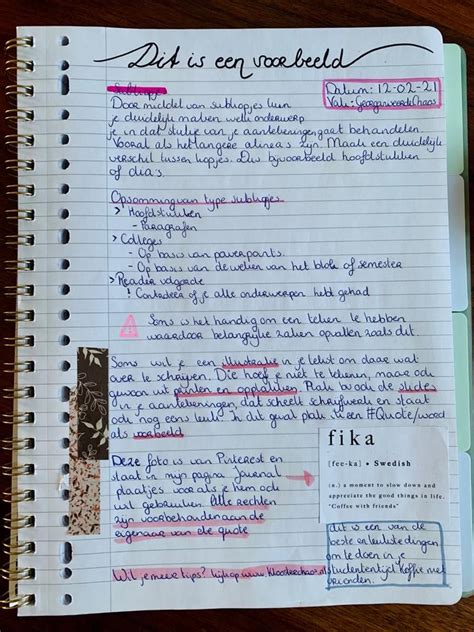 Dit is een voorbeeld
Datum: 12-02-21
Vak: GeorganiseerdeChaos
Subkopje
Door middel van subkopjes kun
je duidelijk maken welk onderwerp
je in dat stukje van je aantekeningen gaat behandelen
Vooral als het langere alinea's zijn. Maak een duidelijk
verschil tussen kopjes. Dus bijvoorbeeld hoofdstukken
of dia's.
Opsomming van type subkopjes
> Hoofdstukken
- Paragrafen
> Colleges
- Op basis van powerpoints.
- Op basis van de weken van het blok of semester
> Reader volgorde
! Controleer of je alle onderwerpen hebt gehad
Soms is het handig om een teken te hebben
waardoor belangrijke zaken opvallen zoals dit
Soms wil je een illustratie in je tekst om daar wat
over te schrijven. Die hoef je niet te tekenen, maar ook
gewoon uit printen en opplakken. Plak bv ook de slides
in je aantekeningen, dat scheelt schrijfwerk en staat
ook nog eens leuk! In dit geval plak ik een #Quote/woord
als voorbeeld
Deze foto is van Pinterest en
staat in mijn pagina journal
plaatjes voor als je hem ook
wil gebruiken. Alle rechten
zijn voorbehouden aan de
eigenaar van de quote
fika
[fee-ka] • Swedish
(n.) a moment to slow down and
appreciate the good things in life.
"Coffee with friends"
dit is een van de
beste en leukste dingen
om te doen in je
studententijd koffie met
vrienden.
Wil je meer tips? kijk op www.